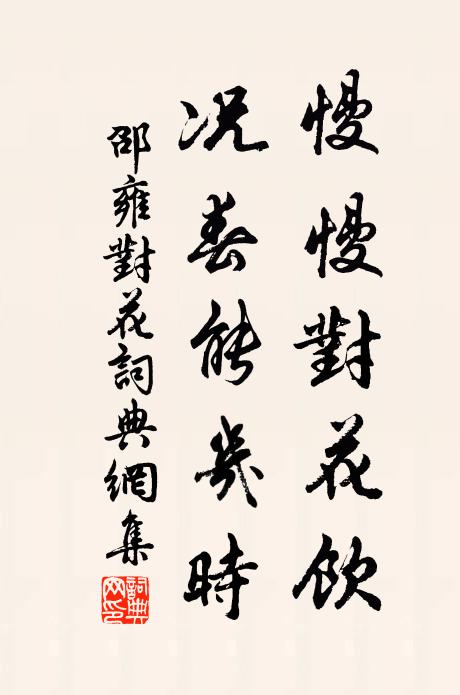 慢慢對花飲
況春能幾時
邵雍對花詞典網集
詞典網印